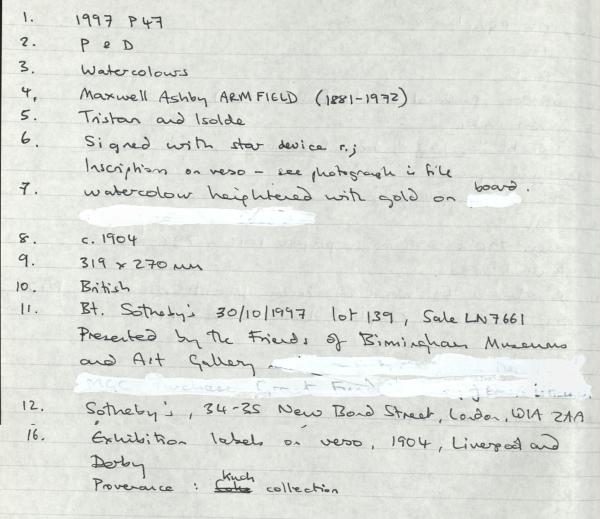 1. 1997 P47
2. P & D
3. Watercolours
4. Maxwell Ashby ARMFIELD (1881-1972)
5. Tristan and Isolde
6. Signed with star device r.;
Inscription on verso - see photograph in file
7. watercolour heightened with gold on board.
8. c. 1904
9. 319 x 270 mm
10. British
11. Bt. Sotheby's 30/10/1997 lot 139, Sale LN7661
Presented by the Friends of Birmingham Museums
and Art Gallery
MGC Purchase Grant Fund
12. Sotheby's, 34-35 New Bond Street, London, W1A 2AA
16. Exhibition labels on verso, 1904, Liverpool and
Derby
Provenance: Kuch collection